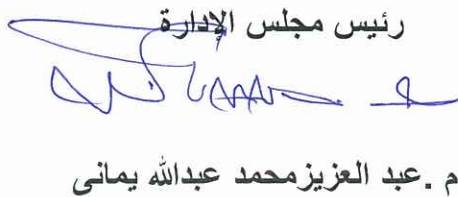 رئيس مجلس الإدارة
م .عبد العزيزمحمد عبدالله يمانى